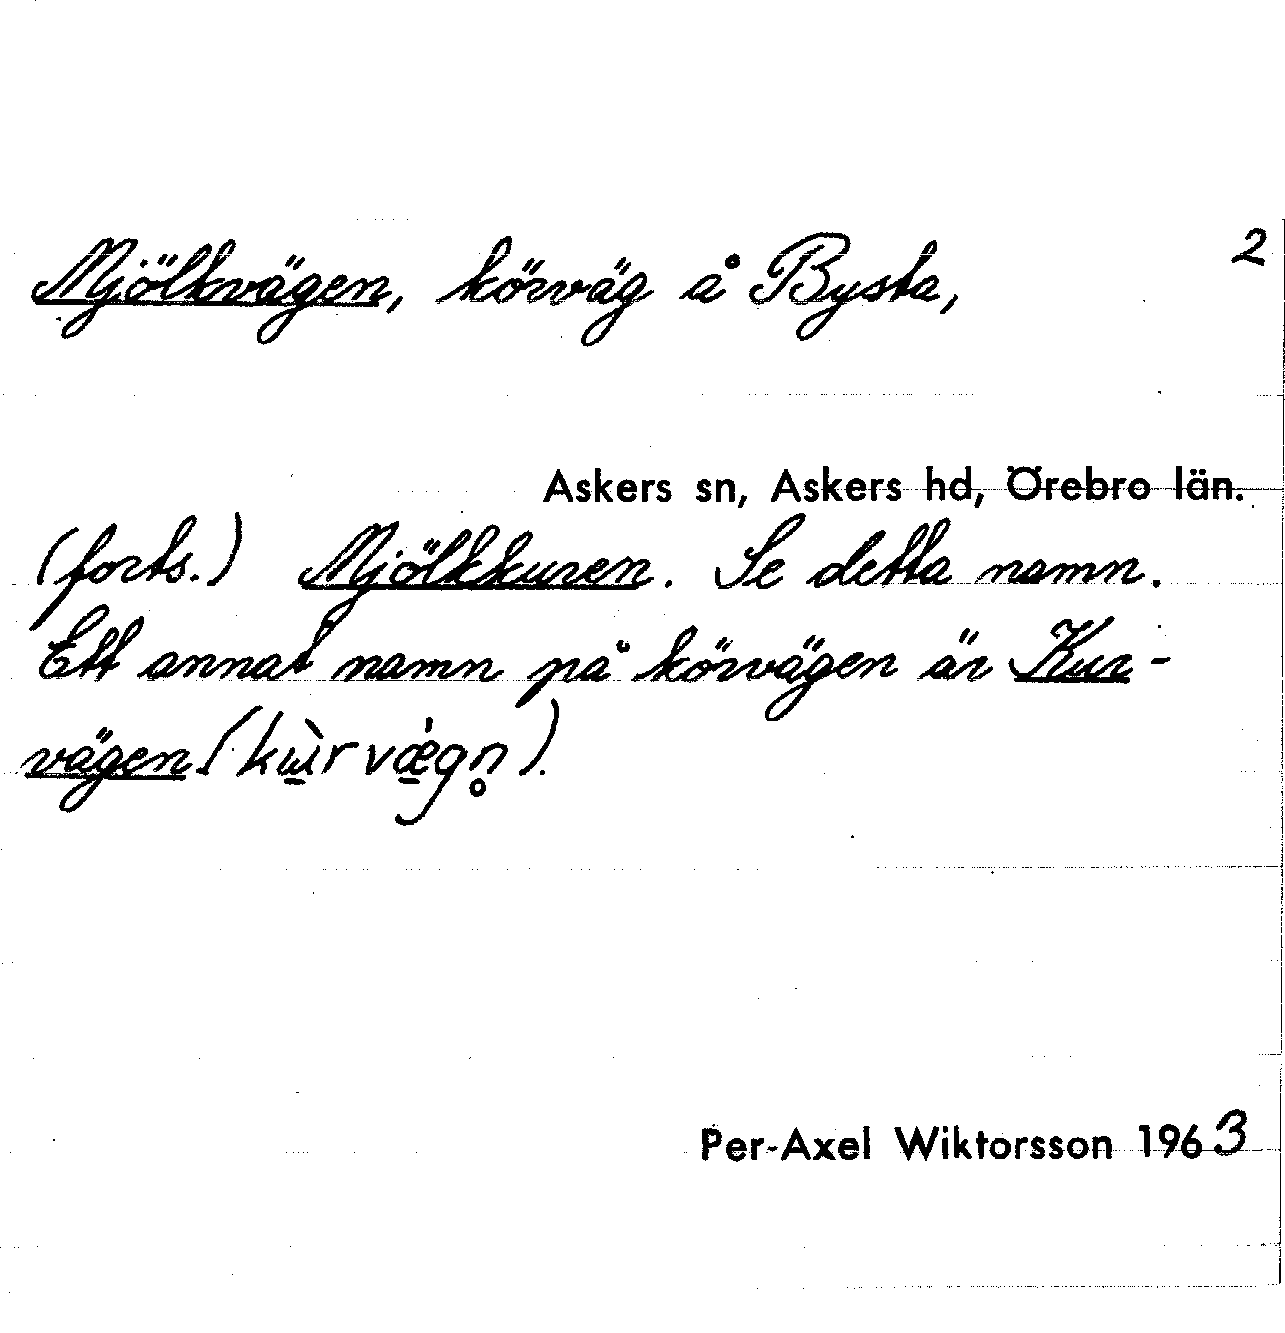 2
Mjölkvägen, körväg å Bysta,
Askers sn, Askers hd, Örebro län.
(forts.) Mjölkkuren. Se detta namn.
Ett annat namn på körvägen är Kur-
vägen (kɯ̠̀r vǽ̠gn̥).
Per-Axel Wiktorsson 1963